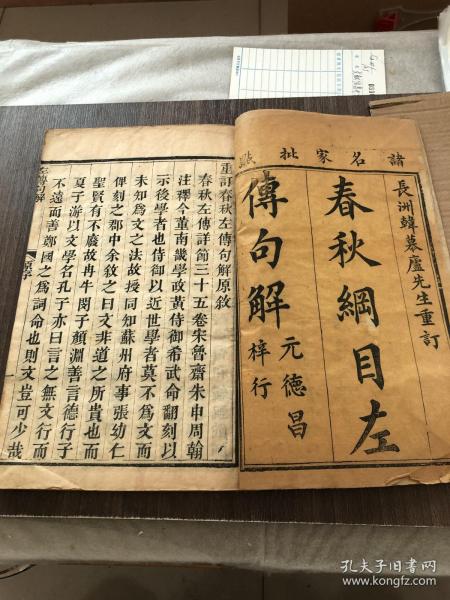 諸名家批點
長洲韓慕廬先生重訂
春秋綱目左
傳句解
元德昌
梓行
重訂春秋左傳句解原敘
春秋左傳詳節三十五卷朱魯齋朱申周翰
注釋今董南畿學政黃侍御希武命翻刻以
示後學者也侍御以近世學者莫不爲文而
未知爲文之法故授同知蘇州府事張幼仁
俾刻之郡中余敘之曰文非道之所貴也而
聖賢有不廢故冉牛閔子顏淵善言德行子
夏子游以文學名孔子亦曰言之無文行而
不遠而善鄭國之爲詞命也則文豈可少哉
左傳句解
原序
一
孔夫子旧书网
www.kongfz.com